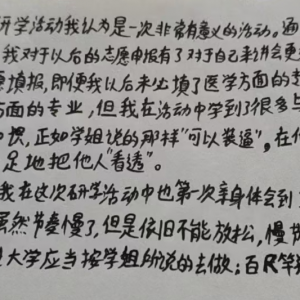 研学活动我认为是一次非常有意义的活动。通
我对于以后的志愿申报有了对于自己来讲会更
愿填报,即便我以后未必填了医学方面的
方面的专业,但我在活动中学到了很多与
惯,正如学姐说的那样"可以装逼",在
足地把他人"看透"。
我在这次研学活动中也第一次亲身体会到
虽然节奏慢了,但是依旧不能放松,慢
大学应当按学姐所说的去做:百尺竿